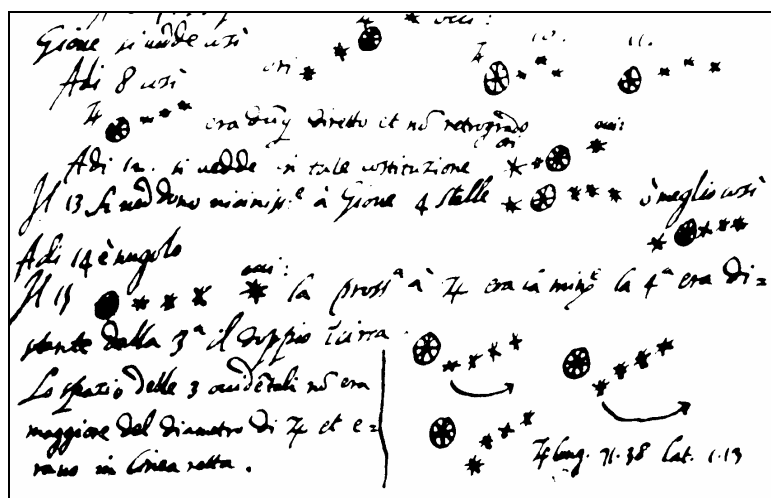 Gione si vedde così
occi:
Adi 8 così
ori
10.
11.
♃ era dunq diretto et nõ retrogrado
ori
occi:
Adi 12. si vedde in tale costituzione
Il 13 si veddono vicinissᵉ à Gione 4 stelle
ò meglio così
Adi 14 è nugolo
Il 15
occi:
la prossᵃ à ♃ era la minˢᵉ la 4ᵃ era di=
stante dalla 3ᵃ il doppio
Lo spazio delle 3 occidẽtali nõ era
maggiore del diametro di ♃ et e=
rano in linea retta.
♃ long. 71.38 lat. 1.13